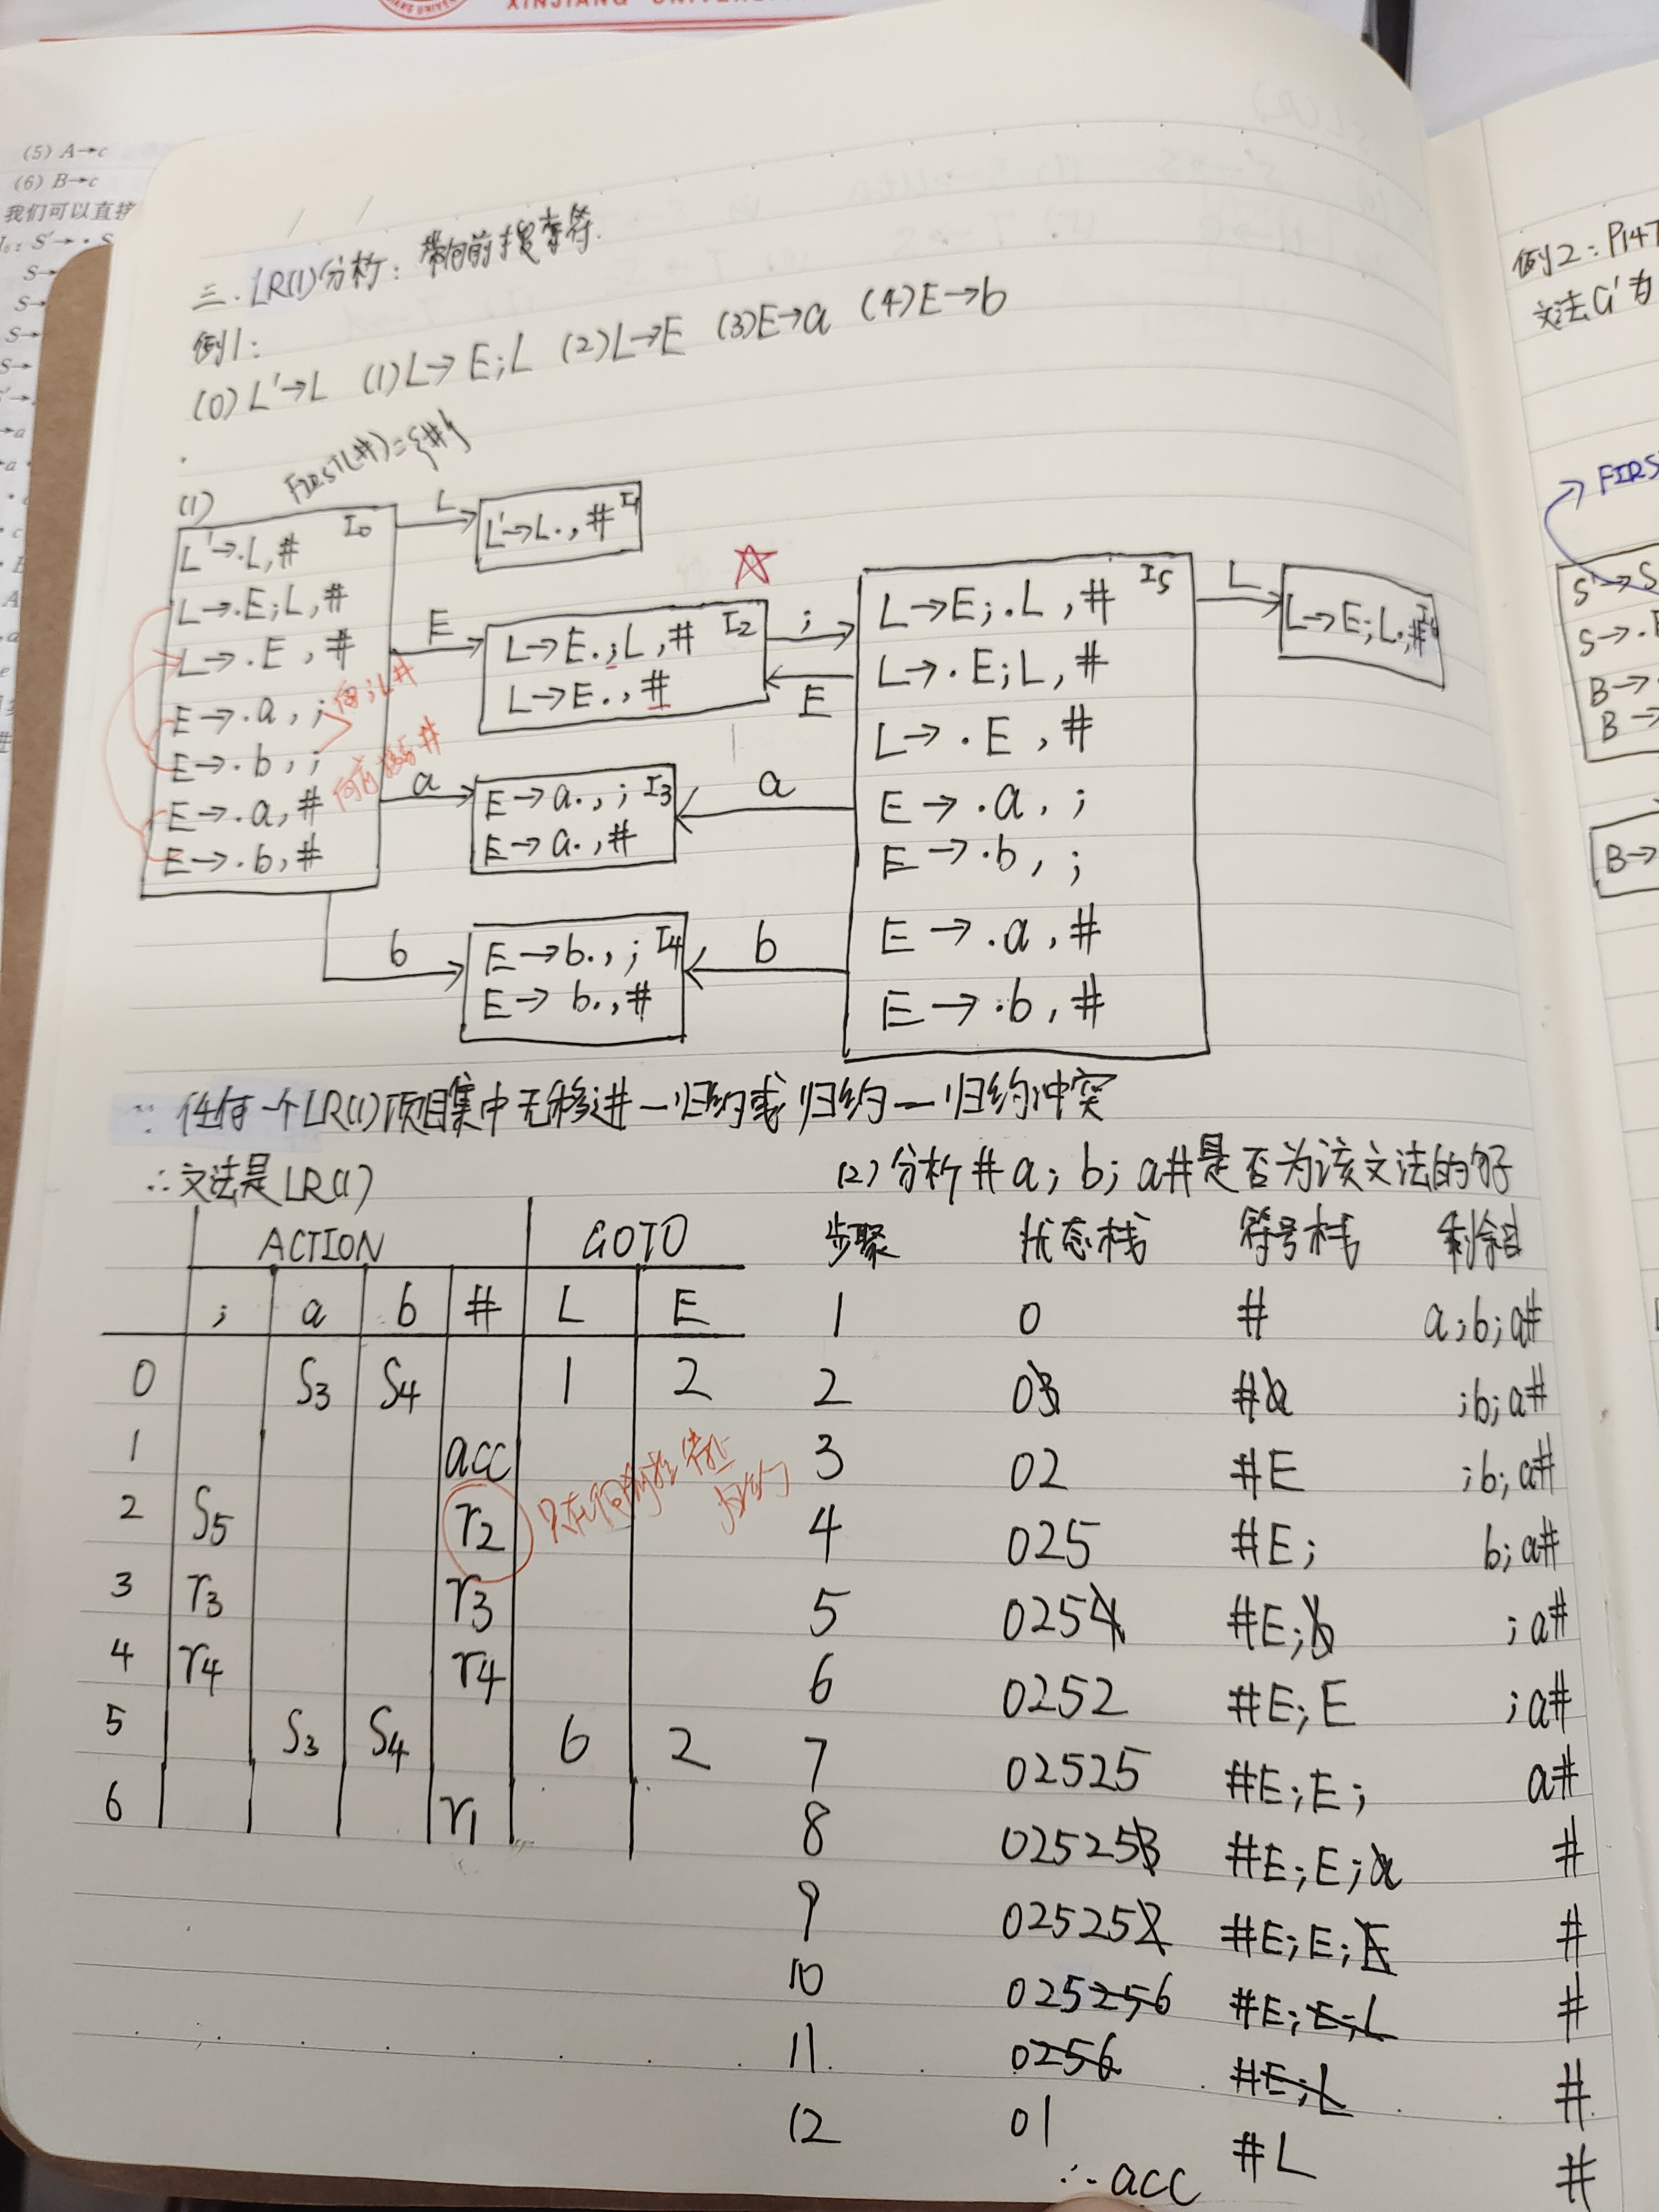 XINJIANG UNIVER
(5) A→c
(6) B→c
我们可以直接
I₀: S'→·S
三. LR(1)分析: 带向前搜索符.
例1:
(0) L'→L (1) L→E;L (2) L→E (3) E→a (4) E→b
(1) FIRST(#)={#}
I₀
L'→.L,#
L→.E;L,#
L→.E,#
E→.a,;
E→.b,;
E→.a,#
E→.b,#
L
L'→L.,# I₁
E
L→E.;L,# I₂
L→E.,#
;
E
a
E→a.,; I₃
E→a.,#
a
b
E→b.,; I₄
E→b.,#
b
L→E;.L,# I₅
L→.E;L,#
L→.E,#
E→.a,;
E→.b,;
E→.a,#
E→.b,#
L
L→E;L.,#
∵ 任何一个LR(1)项目集中无移进—归约或归约—归约冲突
∴文法是LR(1)
ACTION GOTO
; a b # L E
0 S₃ S₄ 1 2
1 acc
2 S₅ r₂
3 r₃ r₃
4 r₄ r₄
5 S₃ S₄ 6 2
6 r₁
(2) 分析#a;b;a#是否为该文法的句子
步骤 状态栈 符号栈 剩余串
1 0 # a;b;a#
2 03 #a ;b;a#
3 02 #E ;b;a#
4 025 #E; b;a#
5 0254 #E;b ;a#
6 0252 #E;E ;a#
7 02525 #E;E; a#
8 025253 #E;E;a #
9 025252 #E;E;E #
10 025256 #E;E;L #
11 0256 #E;L #
12 01 #L #
∴acc
例2: P147
文法G'为
FIRS
S'→S
S→.
B→
B→
B→